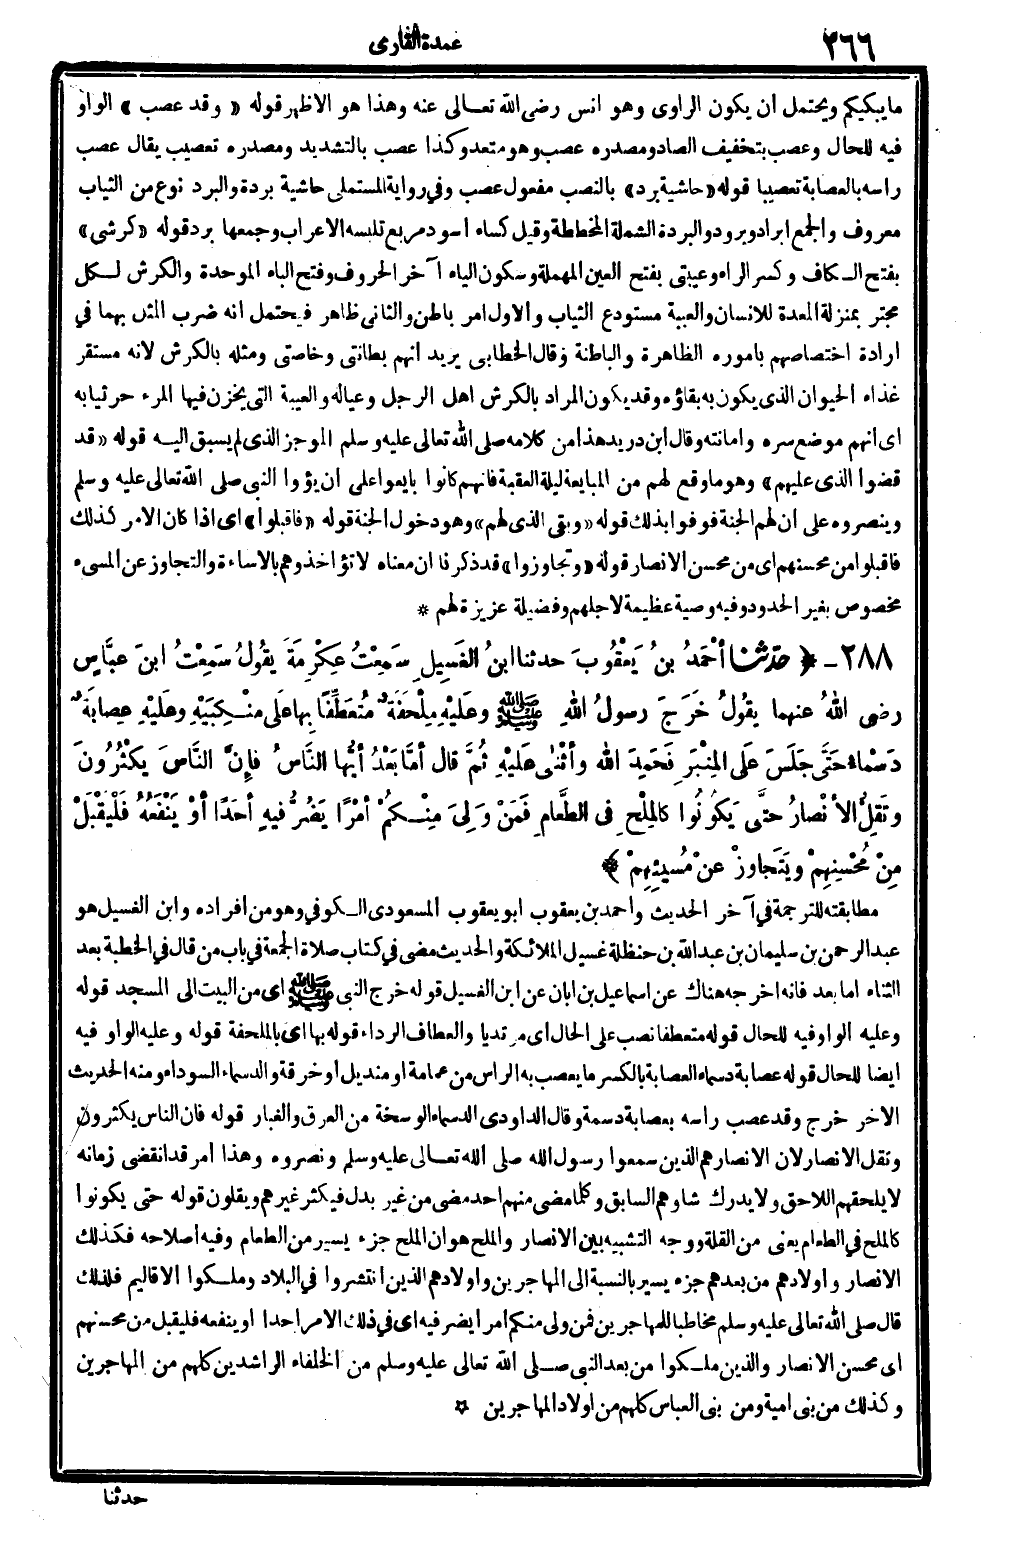 ٢٦٦
عمدة القاري
ما يبكيكم ويحتمل أن يكون الراوى وهو انس رضى الله تعـالى عنه وهذا هو الاظهر قوله « وقد عصب » الواو
فيه للحال وعصب بتخفيف الصاد ومصدره عصب وهو متعد وكذا عصب بالتشديد ومصدره تعصيب يقال عصب
راسه بالعصابة تعصيبا قوله «حاشية برد» بالنصب مفعول عصب وفي رواية المستملى حاشية بردة والبرد نوع من الثياب
معروف والجمع ابراد وبرود والبردة الشملة المخططة وقيل كساء اسود مربع تلبسه الاعراب وجمعها برد قوله «كرشى»
بفتح الـكاف وكسر الراء وعيبتى بفتح العين المهملة وسكون الياء آخر الحروف وفتح الباء الموحدة والكرش لـكل
مجتر بمنزلة المعدة للانسان والعيبة مستودع الثياب والاول امر باطن والثانى ظاهر فيحتمل انه ضرب المثل بهما في
ارادة اختصاصهم باموره الظاهرة والباطنة وقال الخطابى يريد انهم بطانتى وخاصتى ومثله بالكرش لانه مستقر
غذاء الحيوان الذى يكون به بقاؤه وقد يكون المراد بالكرش اهل الرجل وعياله والعيبة التى يخزن فيها المرء حر ثيابه
اى انهم موضع سره وامانته وقال ابن دريد هذا من كلامه صلى الله تعالى عليه وسلم الموجز الذى لم يسبق اليـه قوله «قد
قضوا الذى عليهم» وهو ما وقع لهم من المبايعة ليلة العقبة فانهم كانوا بايعوا على ان يؤوا النبى صلى الله تعالى عليه وسلم
وينصروه على ان لهم الجنة فوفوا بذلك قوله «وبقى الذى لهم» وهو دخول الجنة قوله «فاقبلوا» اى اذا كان الامر كذلك
فاقبلوا من محسنهم اى من محسن الانصار قوله «وتجاوزوا» قد ذكرنا ان معناه لا تؤاخذوهم بالاساءة والتجاوز عن المسىء
مخصوص بغير الحدود وفيه وصية عظيمة لاجلهم وفضيلة عزيزة لهم *
٢٨٨ ـ ﴿ حدثنا أحْمَدُ بنُ يَعْقُوبَ حدثنا ابنُ الغَسِيلِ سَمِعْتُ عِكْرِمَةَ يَقُولُ سَمِعْتُ ابنَ عبَّاسٍ
رضى اللهُ عنهما يقولُ خَرَجَ رسولُ اللهِ ﷺ وعَلَيْهِ مِلْحَفَةٌ مُتَعَطِّفًا بِها عَلَى منْـكِبَيْهِ وعَلَيْهِ عِصابَةٌ
دَسْماءُ حَتَّى جَلَسَ عَلَى المِنْبَرِ فَحَمِدَ الله وأثْنَى عَلَيْهِ ثُمَّ قال أمَّا بَعْدُ أيُّها النَّاسُ فإنَّ النَّاسَ يَكْثُرُونَ
وتَقِلُّ الأنْصارُ حتَّى يَكُونُوا كالمِلْحِ فى الطَّعامِ فَمَنْ وَلِىَ مِنْـكُمْ أمْرًا يَضُرُّ فِيهِ أحَدًا أوْ يَنْفَعُهُ فَلْيَقْبَلْ
مِنْ مُحْسِنِهِمْ ويَتَجاوَزْ عنْ مُسِيئِهِمْ ﴾
مطابقته للترجمة في آخر الحديث واحمد بن يعقوب ابو يعقوب المسعودى الـكوفى وهو من افراده وابن الغسيل هو
عبد الرحمن بن سليمان بن عبد الله بن حنظلة غسيل الملائكة والحديث مضى في كتاب صلاة الجمعة في باب من قال في الخطبة بعد
الثناء اما بعد فانه اخرجه هناك عن اسماعيل بن ابان عن ابن الغسيل قوله خرج النبى ﷺ اى من البيت الى المسجد قوله
وعليه الواو فيه للحال قوله متعطفا نصب على الحال اى مرتديا والعطاف الرداء قوله بها اى بالملحفة قوله وعليه الواو فيه
ايضا للحال قوله عصابة دسماء العصابة بالكسر ما يعصب به الراس من عمامة او منديل او خرقة والدسماء السوداء ومنه الحديث
الاخر خرج وقد عصب راسه بعصابة دسمة وقال الداودى الدسماء الوسخة من العرق والغبار قوله فان الناس يكثرون
وتقل الانصار لان الانصار هم الذين سمعوا رسول الله صلى الله تعـالى عليه وسلم ونصروه وهذا امر قد انقضى زمانه
لا يلحقهم اللاحق ولا يدرك شاوهم السابق وكلما مضى منهم احد مضى من غير بدل فيكثر غيرهم ويقلون قوله حتى يكونوا
كالملح في الطعام يعنى من القلة ووجه التشبيه بين الانصار والملح هو ان الملح جزء يسير من الطعام وفيه اصلاحه فكذلك
الانصار واولادهم من بعدهم جزء يسير بالنسبة الى المهاجرين واولادهم الذين انتشروا في البلاد وملـكوا الاقاليم فلذلك
قال صلى الله تعالى عليه وسلم مخاطبا للمهاجرين فمن ولى منكم امرا يضر فيه اى في ذلك الامر احدا او ينفعه فليقبل من محسنهم
اى محسن الانصار والذين ملـكوا من بعد النبى صـلى الله تعالى عليه وسلم من الخلفاء الراشدين كلهم من المهاجرين
وكذلك من بنى امية ومن بنى العباس كلهم من اولاد المهاجرين *
حدثنا